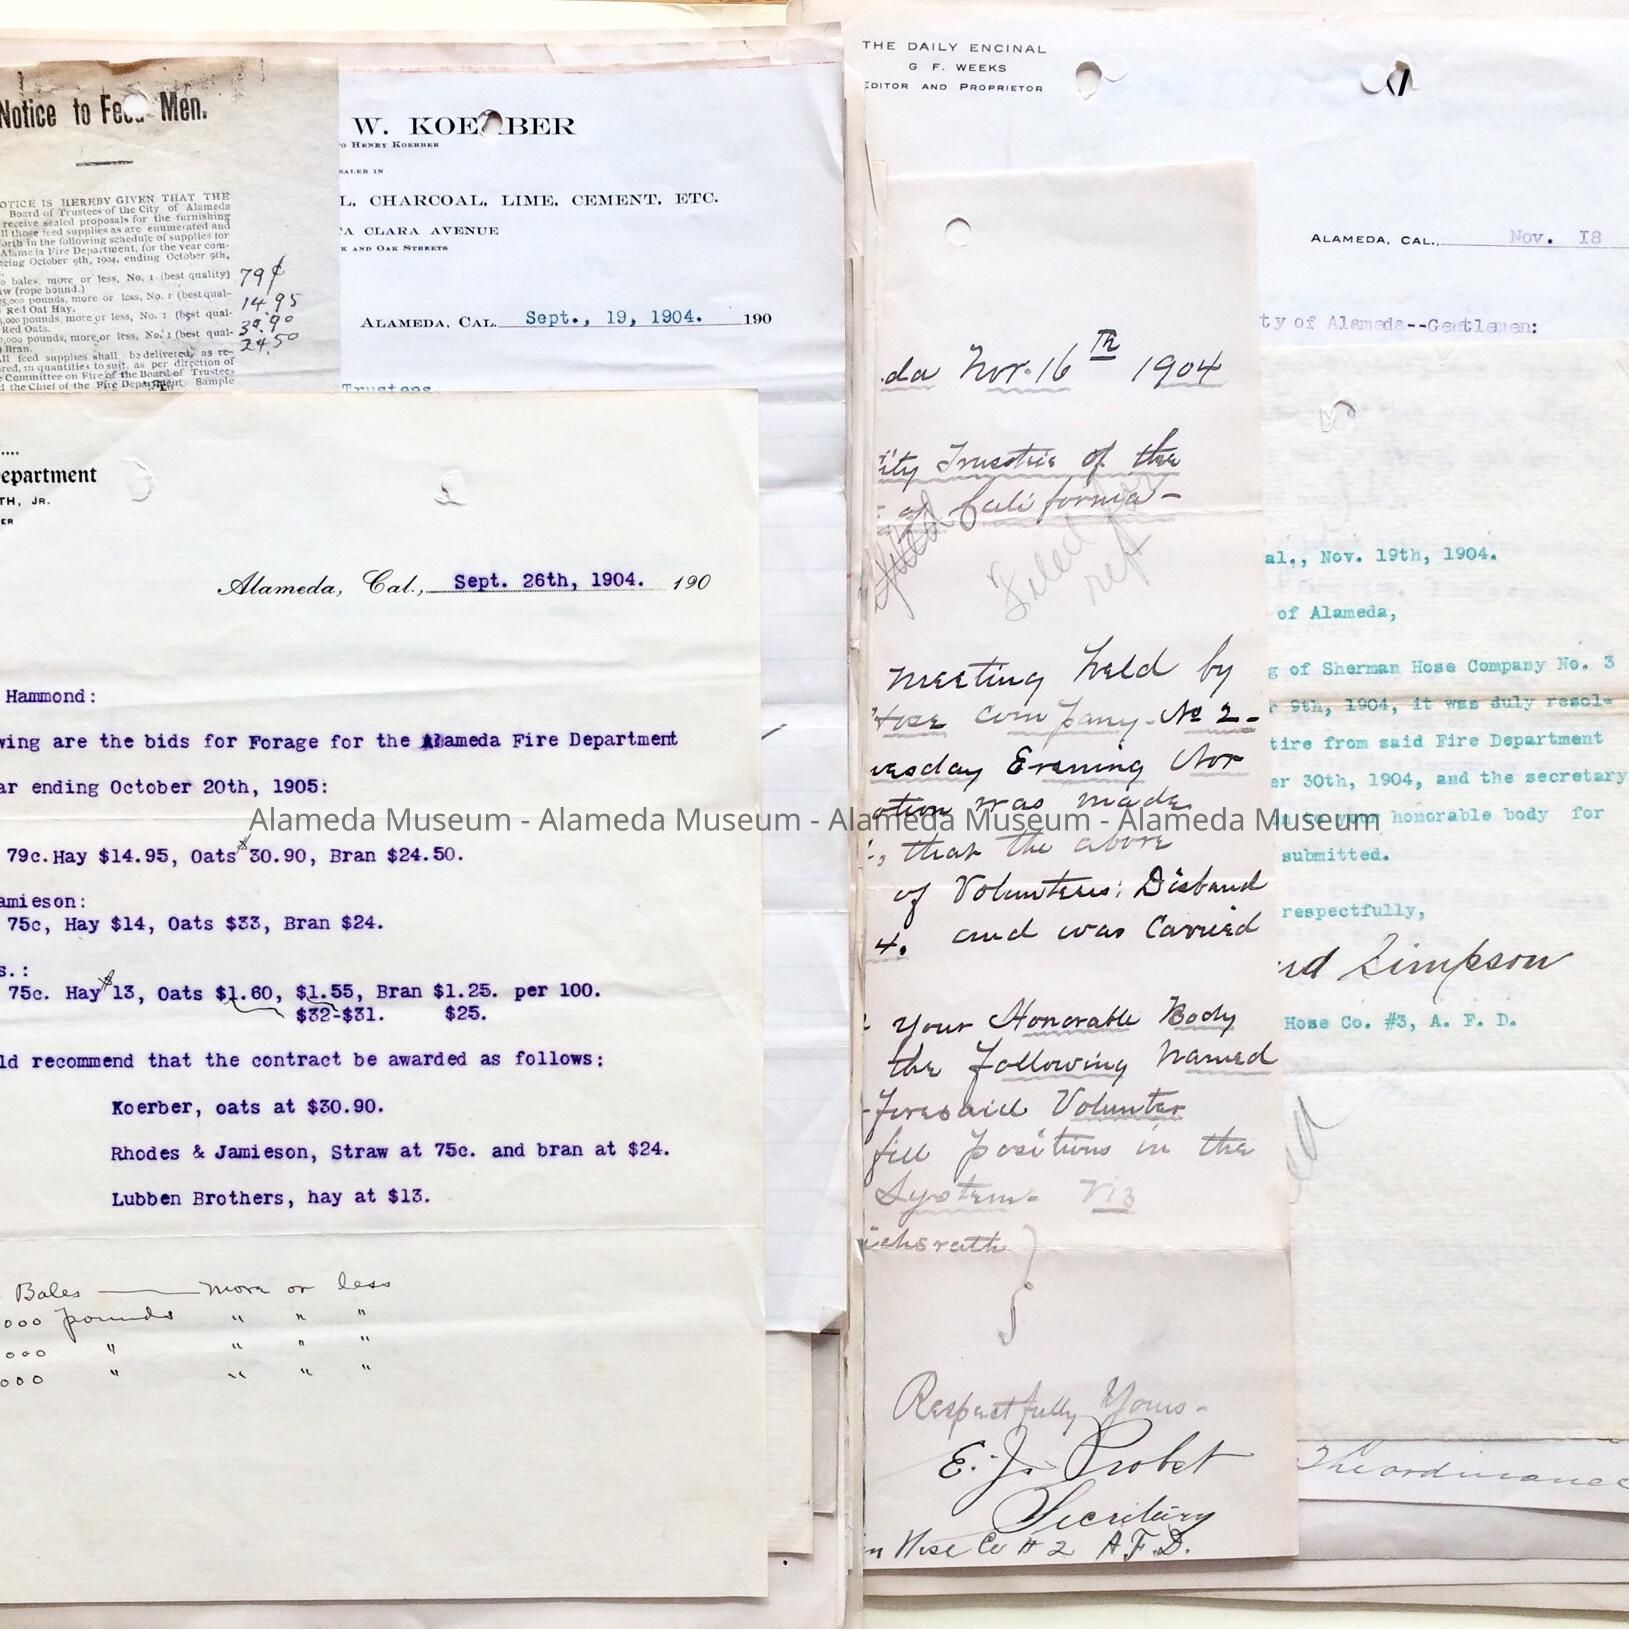 Notice to Feed Men.
OTICE IS HEREBY GIVEN THAT THE
Board of Trustees of the City of Alameda
receive sealed proposals for the furnishing
ll those feed supplies as are enumerated and
orth in the following schedule of supplies for
Alameda Fire Department, for the year com-
cing October 9th, 1904, ending October 9th,
o bales, more or less, No. 1 (best quality) 79¢
w (rope bound.)
5,000 pounds, more or less, No. 1 (best qual- 14.95
Red Oat Hay.
,000 pounds, more or less, No. 1 (best qual- 30.90
Red Oats.
,000 pounds, more or less, No. 1 (best qual- 24.50
Bran.
ll feed supplies shall be delivered, as re-
red, in quantities to suit, as per direction of
Committee on Fire of the Board of Trustees
d the Chief of the Fire Department. Sample
W. KOERBER
O HENRY KOERBER
EALER IN
L, CHARCOAL, LIME, CEMENT, ETC.
TA CLARA AVENUE
K AND OAK STREETS
ALAMEDA, CAL. Sept., 19, 1904. 190
Trustees
epartment
TH, JR.
ER
Alameda, Cal., Sept. 26th, 1904. 190
Hammond:
wing are the bids for Forage for the Alameda Fire Department
ar ending October 20th, 1905:
79c. Hay $14.95, Oats $30.90, Bran $24.50.
amieson:
75c, Hay $14, Oats $33, Bran $24.
s.:
75c. Hay $13, Oats $1.60, $1.55, Bran $1.25. per 100.
$32-$31. $25.
ld recommend that the contract be awarded as follows:
Koerber, oats at $30.90.
Rhodes & Jamieson, Straw at 75c. and bran at $24.
Lubben Brothers, hay at $13.
Bales — more or less
000 pounds " " "
000 " " " "
000 " " " "
THE DAILY ENCINAL
G. F. WEEKS
EDITOR AND PROPRIETOR
ALAMEDA, CAL., Nov. 18
ty of Alameda--Gentlemen:
da Nov. 16th 1904
ity Trustees of the
of California-
Filed
ref
Meeting held by
Hose Company. No 2-
uesday Evening Nov
otion was made
, that the above
of Volunteers: Disband
4. and was Carried
Your Honorable Body
the following Named
foresaid Volunter
fill positions in the
System- Viz
ichsrath }
Respectfully Yours-
E. J. Probst
Secretary
n Hose Co # 2 A.F.D.
al., Nov. 19th, 1904.
of Alameda,
g of Sherman Hose Company No. 3
r 9th, 1904, it was duly resol-
tire from said Fire Department
er 30th, 1904, and the secretary
n to your honorable body for
submitted.
respectfully,
rd Simpson
Hose Co. #3, A. F. D.
The ordinance
Alameda Museum - Alameda Museum - Alameda Museum - Alameda Museum